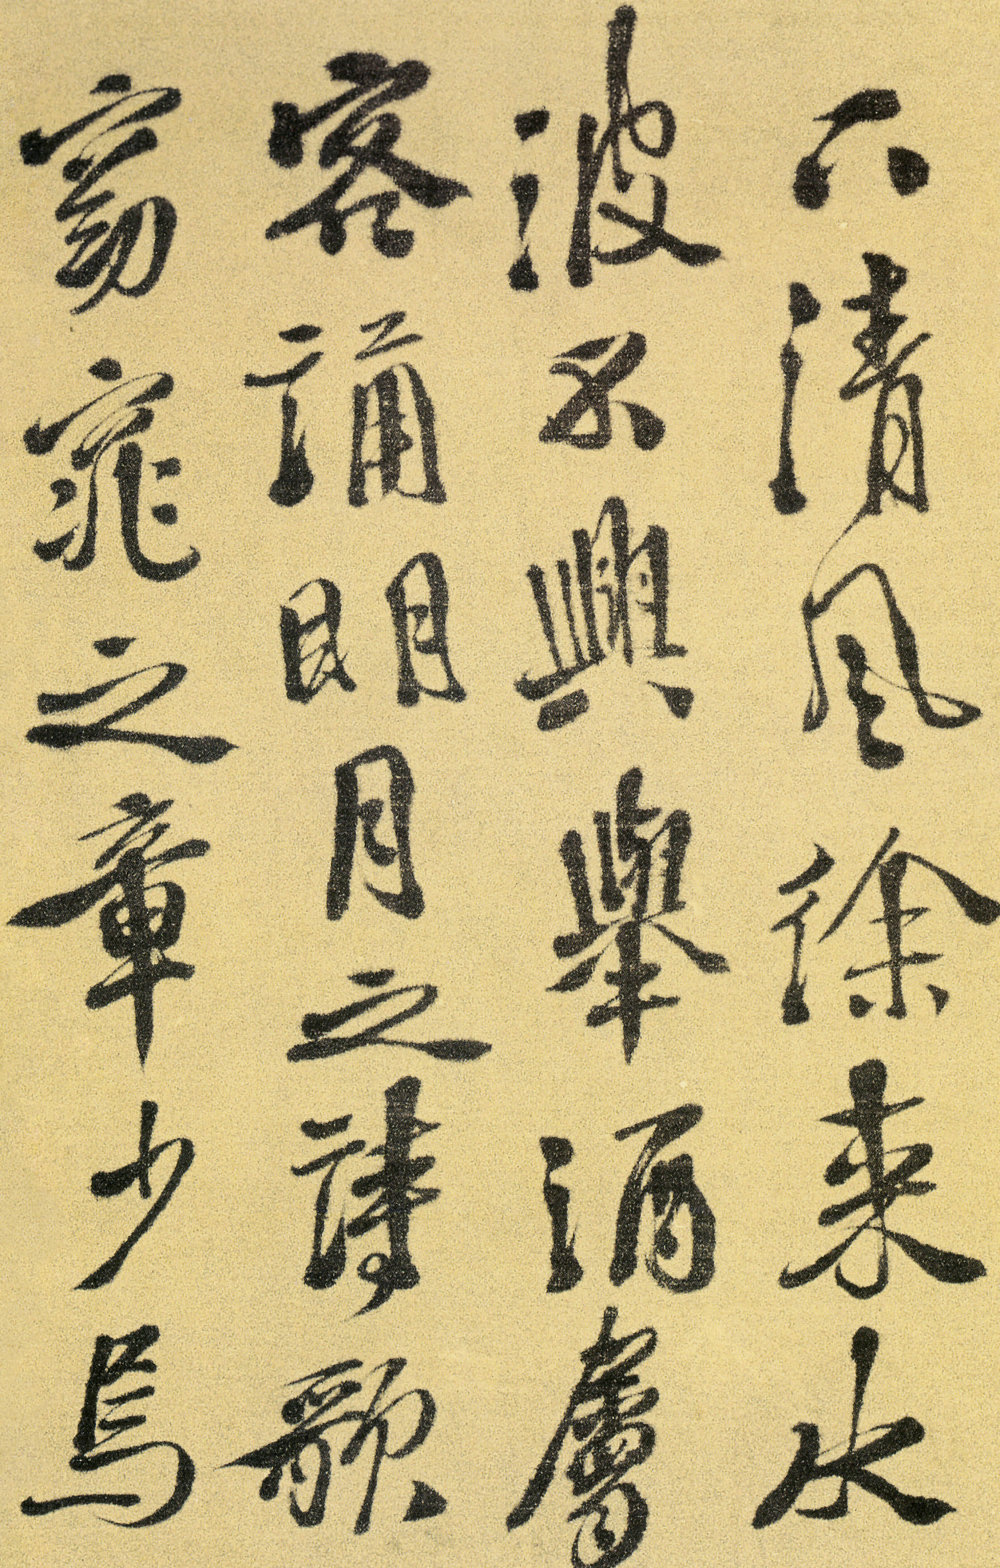 下清風徐來水
波不興舉酒屬
客誦明月之詩歌
窈窕之章少焉